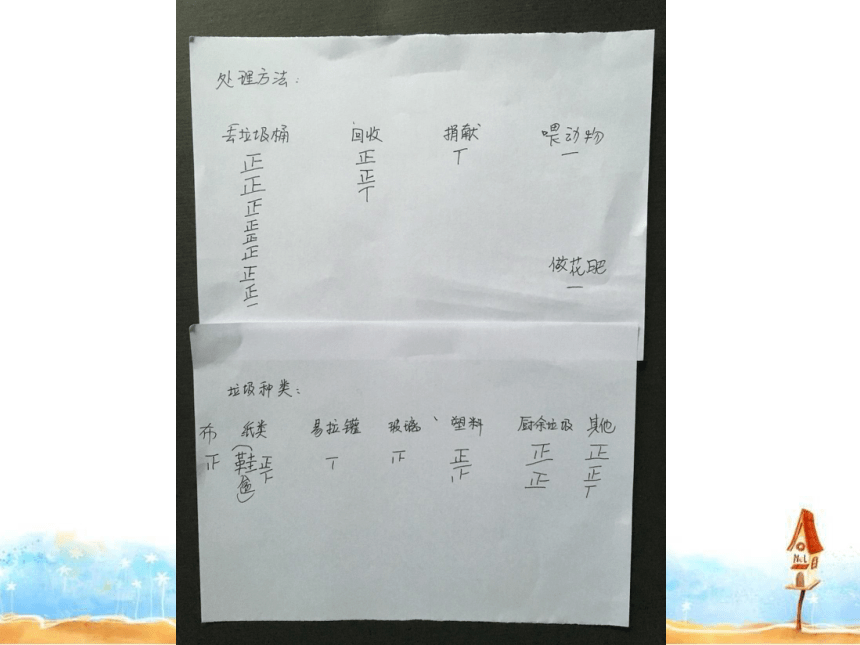 处理方法：
丢垃圾桶 回收 捐献 喂动物
正 正 丅 一
正 正
正 丅
正
正
正
正
正
一
做花肥
一
垃圾种类：
布 纸类 易拉罐 玻璃、 塑料 厨余垃圾 其他
正 (鞋盒) 正 丅 正 正 正
正 正
丅
NcL